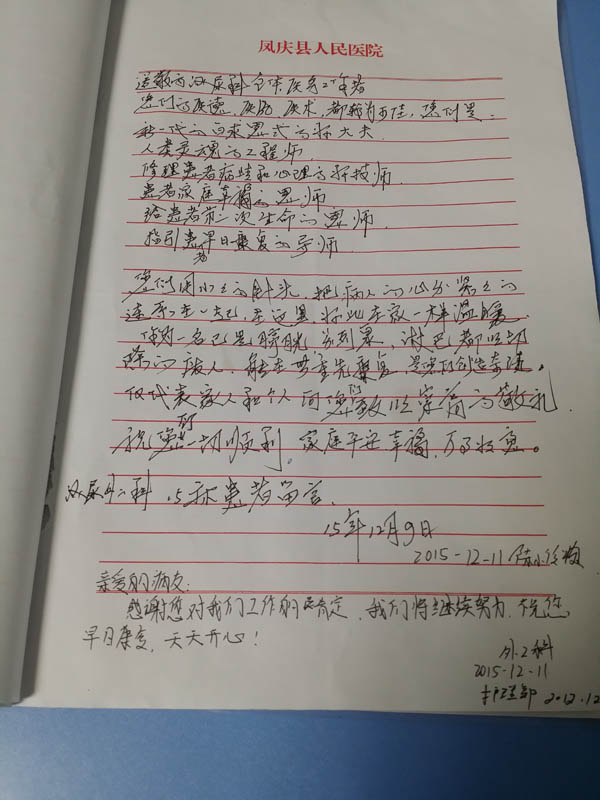 凤庆县人民医院
送敬内泌尿科全体医务工作者
您们的医德，医防，医术，都我为可佳，您们是
新一代的白求恩式的好大夫
人类灵魂的工程师
修理患者病患和心理的科技师
患者家庭幸福的恩师
给患者第二次生命的恩师
指引患者早日康复的导师
您们用小小的针光，把病人的心分紧紧的
连系在一起，在这里，好比在家一样温暖
作为一名已是膀胱，前列晏，淋巴都以切
除的病人，能在此重先康复，是您们创造奇迹。
仅代表家人和个人向您们致以崇高的敬礼
祝您们一切顺利。家庭平安幸福，万事如意。
泌尿外二科 15床患者留言
15年12月9日
2015-12-11
亲爱的病友：
感谢您对我们工作的肯定，我们将继续努力，祝您
早日康复，天天开心！
外二科
2015-12-11
护理部 2012.12